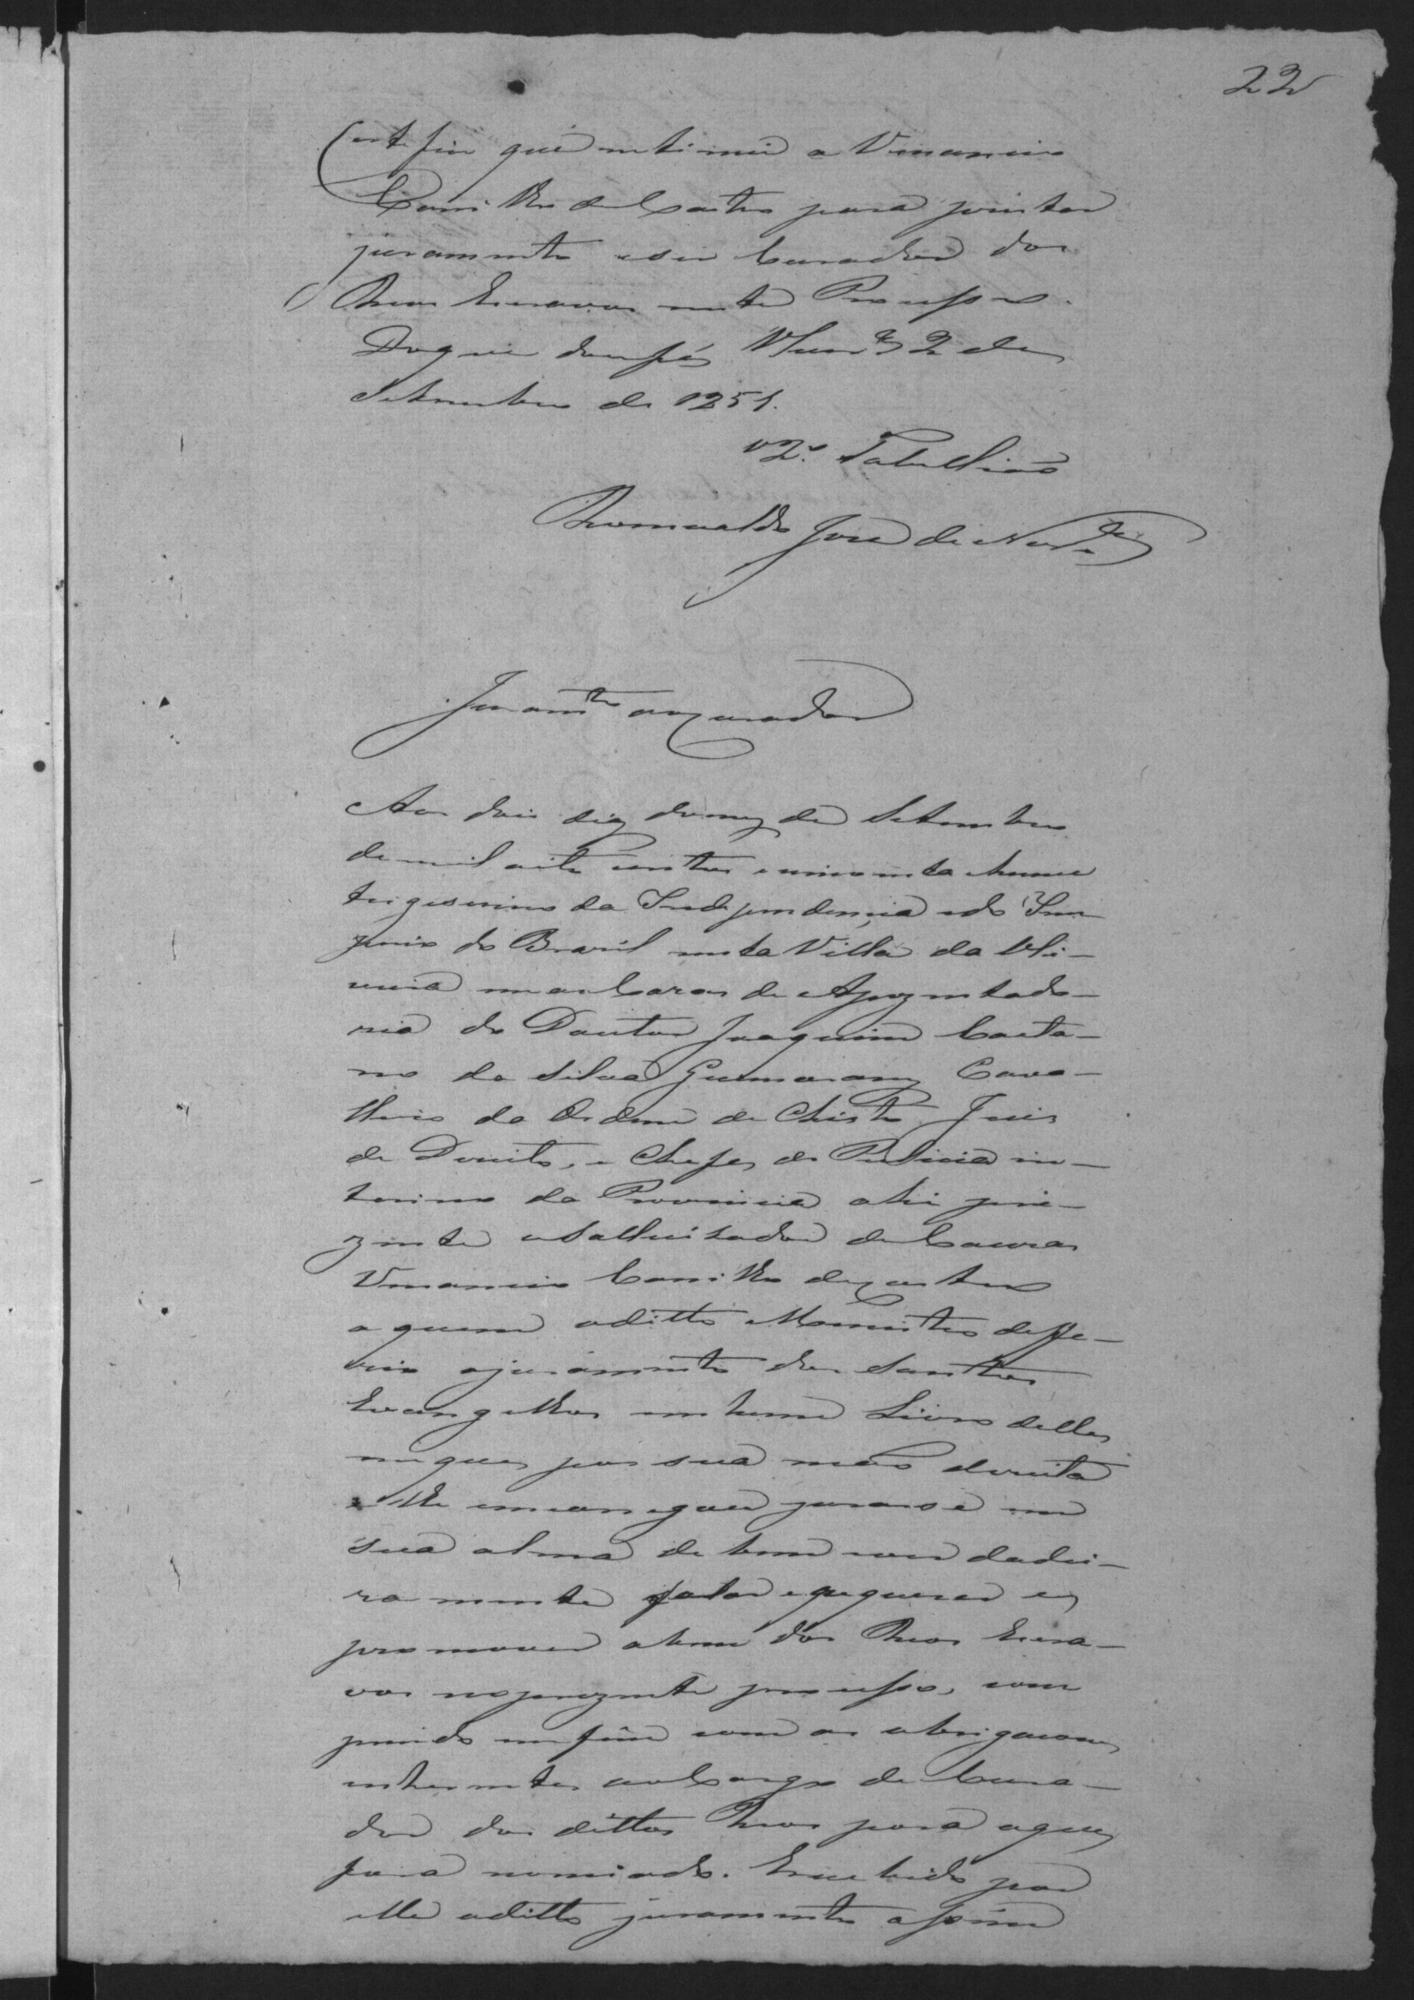 22
Certefico que intimei a Venancio
Carrilho de Castro para prestar
juramento e ser Curador dos
Reos Escravos neste Processo.
Do que dou fé 2 de
Setembro de 1851.
O 2º Tabellião
Romualdo José de
Juramto ao Curador
Aos dois dias do mez de Setembro
de mil oito centos e cincoenta e hum
trigesimo da Independencia e do Im-
perio do Brasil nesta Villa da Vi-
em as Cazas de Apozentado-
ria do Doutor Joaquim Caeta-
no da Silva Guimaraens Cava-
lheiro da Ordem de Christo Juis
de Direito, e Chefe de Policia in-
terino da Provincia ahi pre-
zente o Sollicitador de Cauzas
Venancio Carrilho de Castro
a quem o ditto Menistro deffe-
rio o juramento dos Santos
Evangelhos em hum Livro delles
em que pos sua mão direita
e lhe encarregou jurasse em
sua alma de bem e verdadei-
ramente falar e requerer e
promover a bem dos Reos Escra-
vos no prezente processo, com
prindo em fim com as obrigacoens
inherentes ao Cargo de Cura-
dor dos dittos Reos para o que
fora nomiado. E recebido por
elle o ditto juramento assim